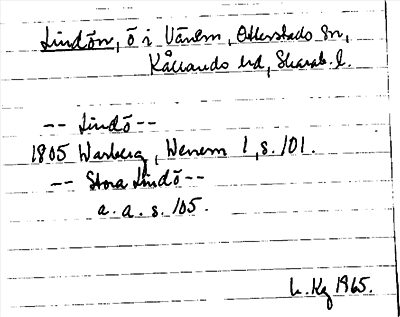 Lindön, ö i Vänern, Otterstads sn,
Kållands hd, Skarab. l.
-- Lindö --
1805 Warberg, Wenern 1, s. 101.
-- Stora Lindö --
a. a. s. 105.
1965.